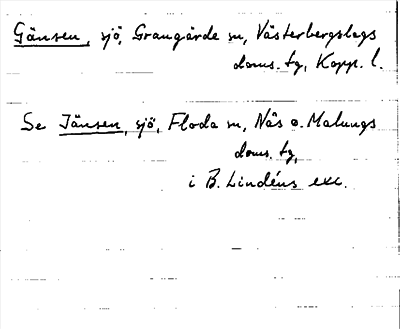 Gänsen, sjö, Grangärde sn, Västerbergslags
doms. tg, Kopp. l.
Se Jänsen, sjö, Floda sn, Nås o. Malungs
doms. tg,
i B. Lindéns exc.